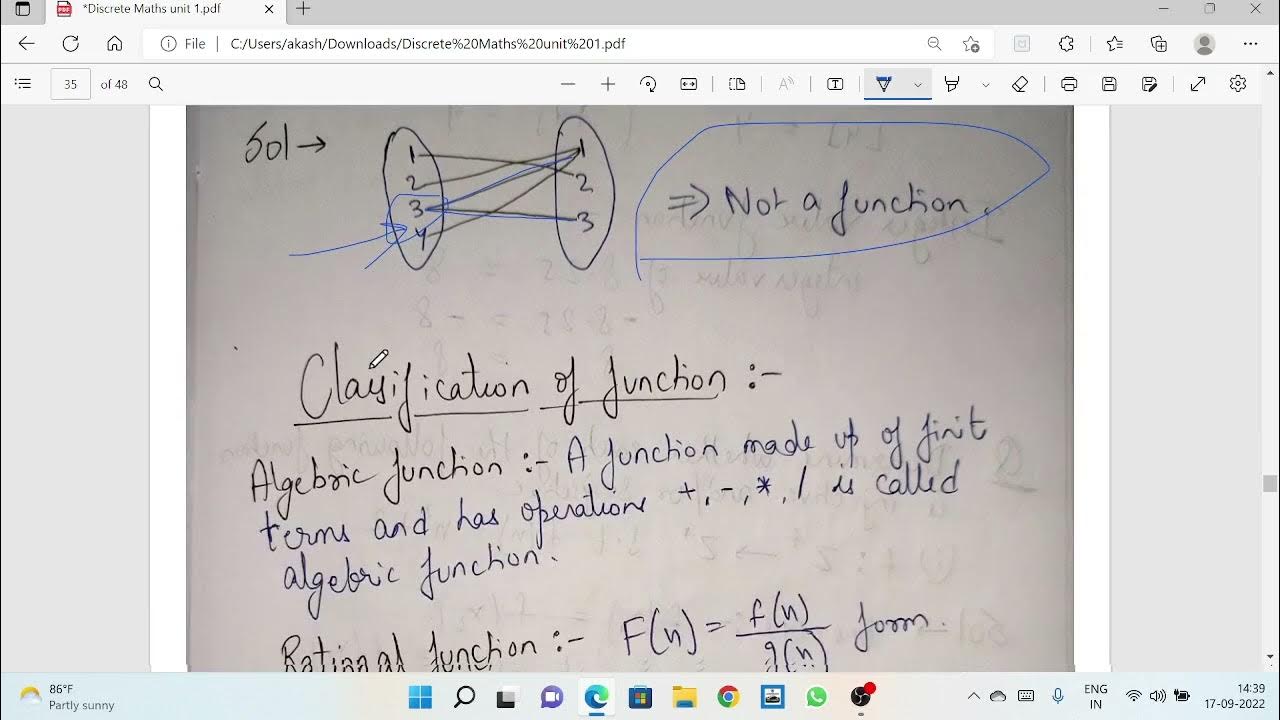 *Discrete Maths unit 1.pdf
File
C:/Users/akash/Downloads/Discrete%20Maths%20unit%201.pdf
35 of 48
Sol →
1 1
2 2
3 3
4
⇒ Not a function.
Classification of function :-
Algebric function :- A function made up of finit
terms and has operations +, -, *, / is called
algebric function.
Rational function :- F(x) = f(x)/g(x) form.
86°F
Partly sunny
ENG
IN
14:39
17-09-2022